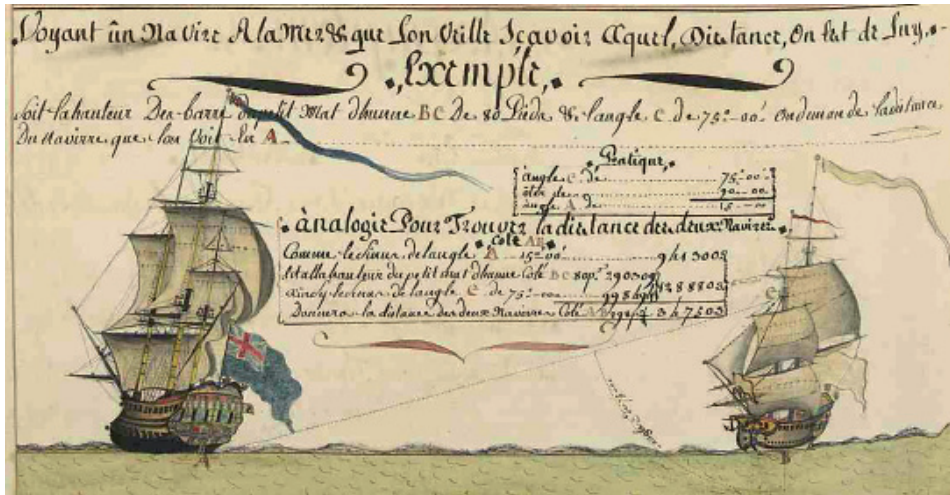 Voyant un Navire A la Mer & que Lon Veille Scavoir Aquel, Distance, On Est de Luy.
Exemple,
Soit la hauteur Des barre du petit Mat dhunne BC De 80 Pieds & langle C de 75=00' On demende la distance
Du Navirre que lon Voit En A
Pratique,
angle C de 75=00'
ôter de 90=00
angle A de 15=00
analogie Pour Trouver la distance des deux Navires
Cote AB
Comme le Sinus de langle A 15=00' 941300
Est a la hauteur du petit mat dhunne Coté BC 80 p. 190309
Ainsy le sinus de langle C de 75=00 998494
1188803
Donnera la distance des deux Navirres Coté AB 298 p. 247503
C
A
B